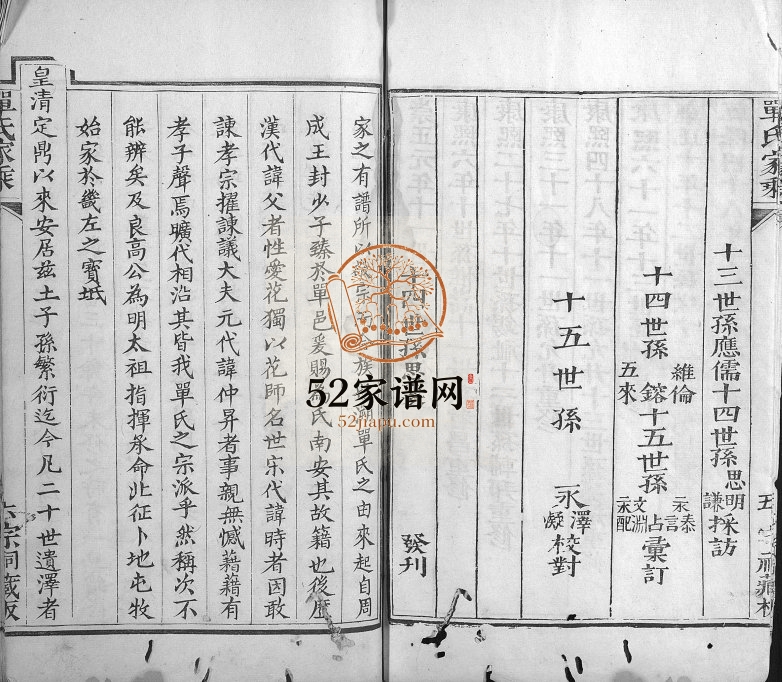 單氏家乘
十三世孫應儒十四世孫思明謙採訪
十四世孫維倫五來鎔十五世孫永泰言占文淵永配彙訂
十五世孫永澤凝校對
十四世孫思
發刊
五宗祠藏板
家之有譜所以宗族單氏之由來起自周
成王封少子臻於單邑爰賜氏南安其故籍也後歷
漢代諱父者性愛花獨以花師名世宋代諱時者因敢
諫孝宗擢諫議大夫元代諱仲昇者事親無憾藉藉有
孝子聲焉曠代相沿其皆我單氏之宗派乎然稱次不
能辨矣及良高公為明太祖指揮承命北征卜地屯牧
始家於畿左之寶坻
皇清定鼎以來安居茲土子孫繁衍迄今凡二十世遺澤者
單氏家乘
宗祠藏板
52家谱网
52jiapu.com